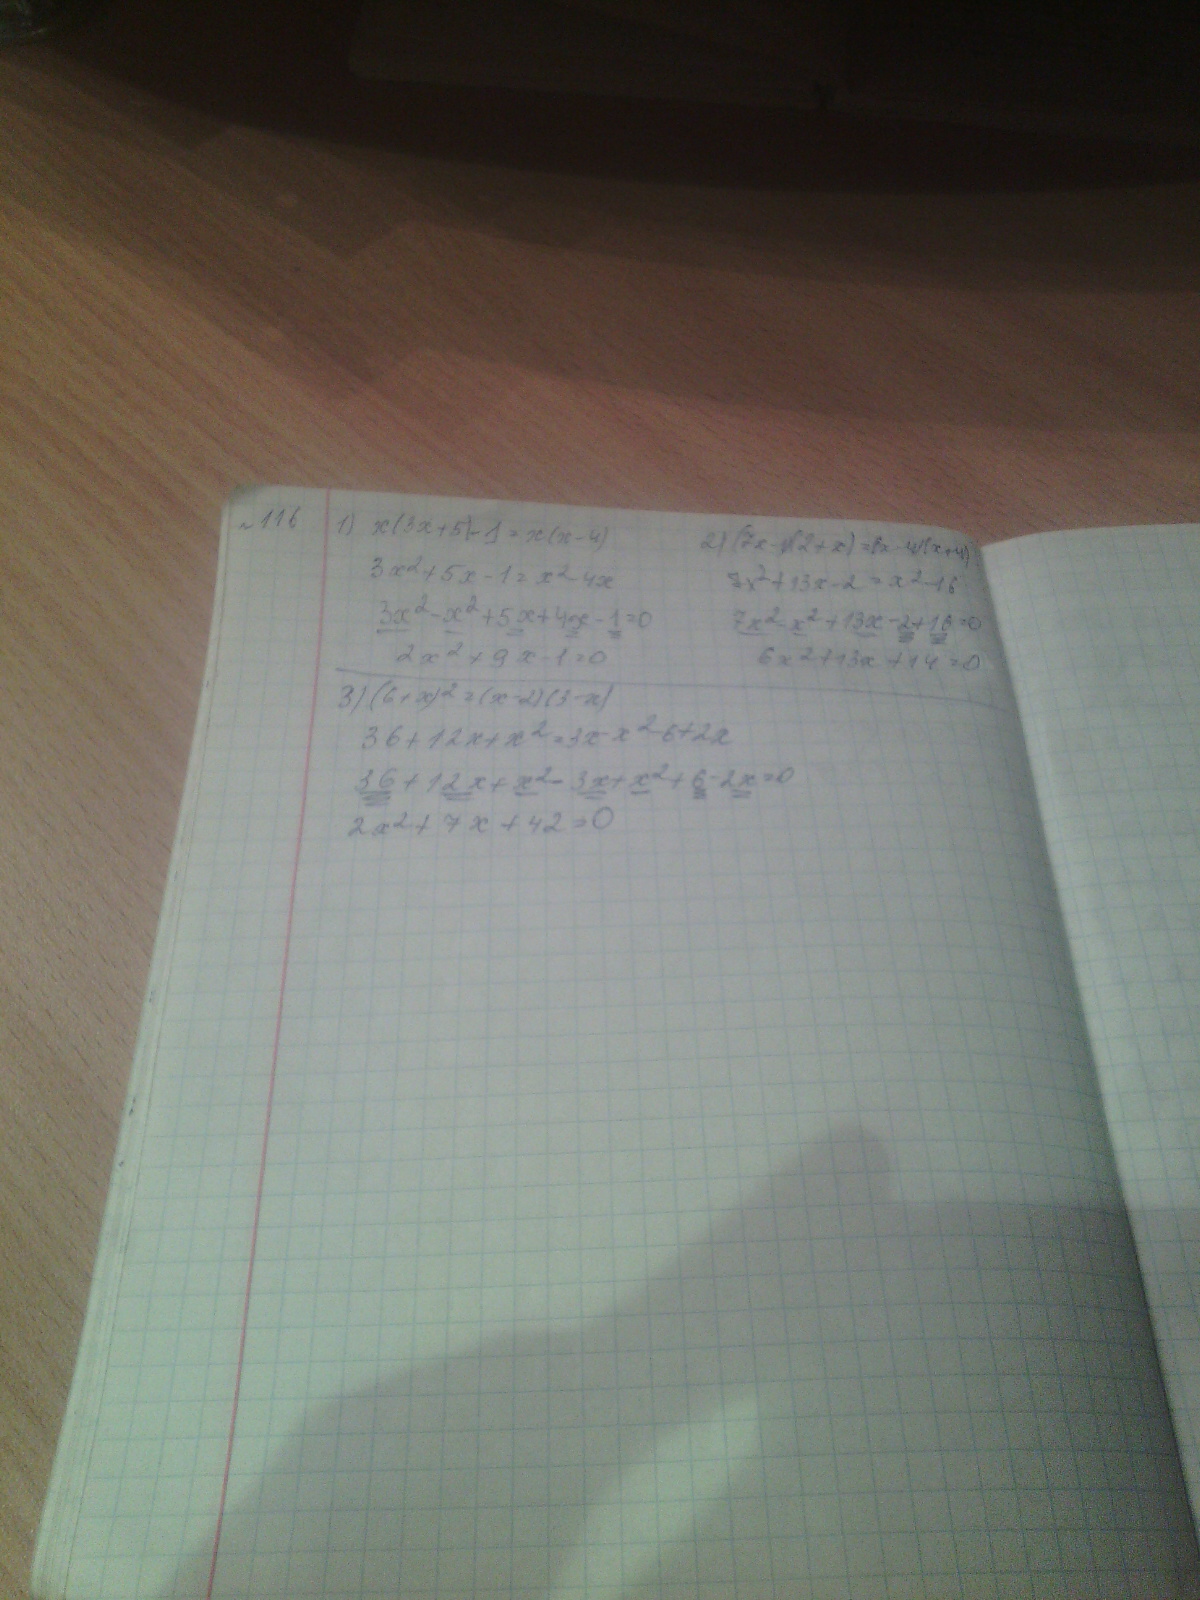 ~116 1) x(3x+5)-1=x(x-4)
3x²+5x-1=x²-4x
3x²-x²+5x+4x-1=0
2x²+9x-1=0
2) (7x-1)(2+x)=(x-4)(x+4)
7x²+13x-2=x²-16
7x²-x²+13x-2+16=0
6x²+13x+14=0
3) (6+x)²=(x-2)(3-x)
36+12x+x²=3x-x²-6+2x
36+12x+x²-3x+x²+6-2x=0
2x²+7x+42=0